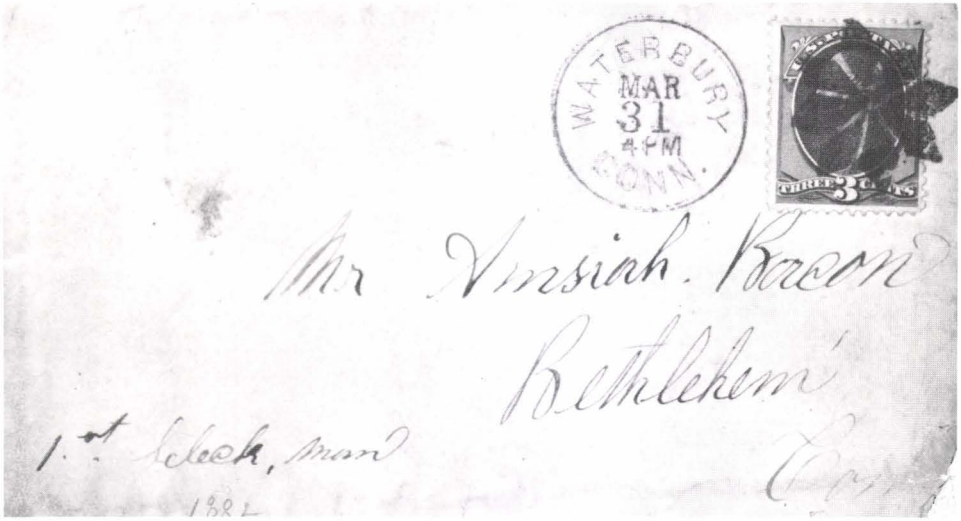 WATERBURY
MAR
31
4 PM
CONN.
THREE 3 CENTS
Mr Amsiah. Bacon
Bethlehem
Conn
1.st Select, man
1882